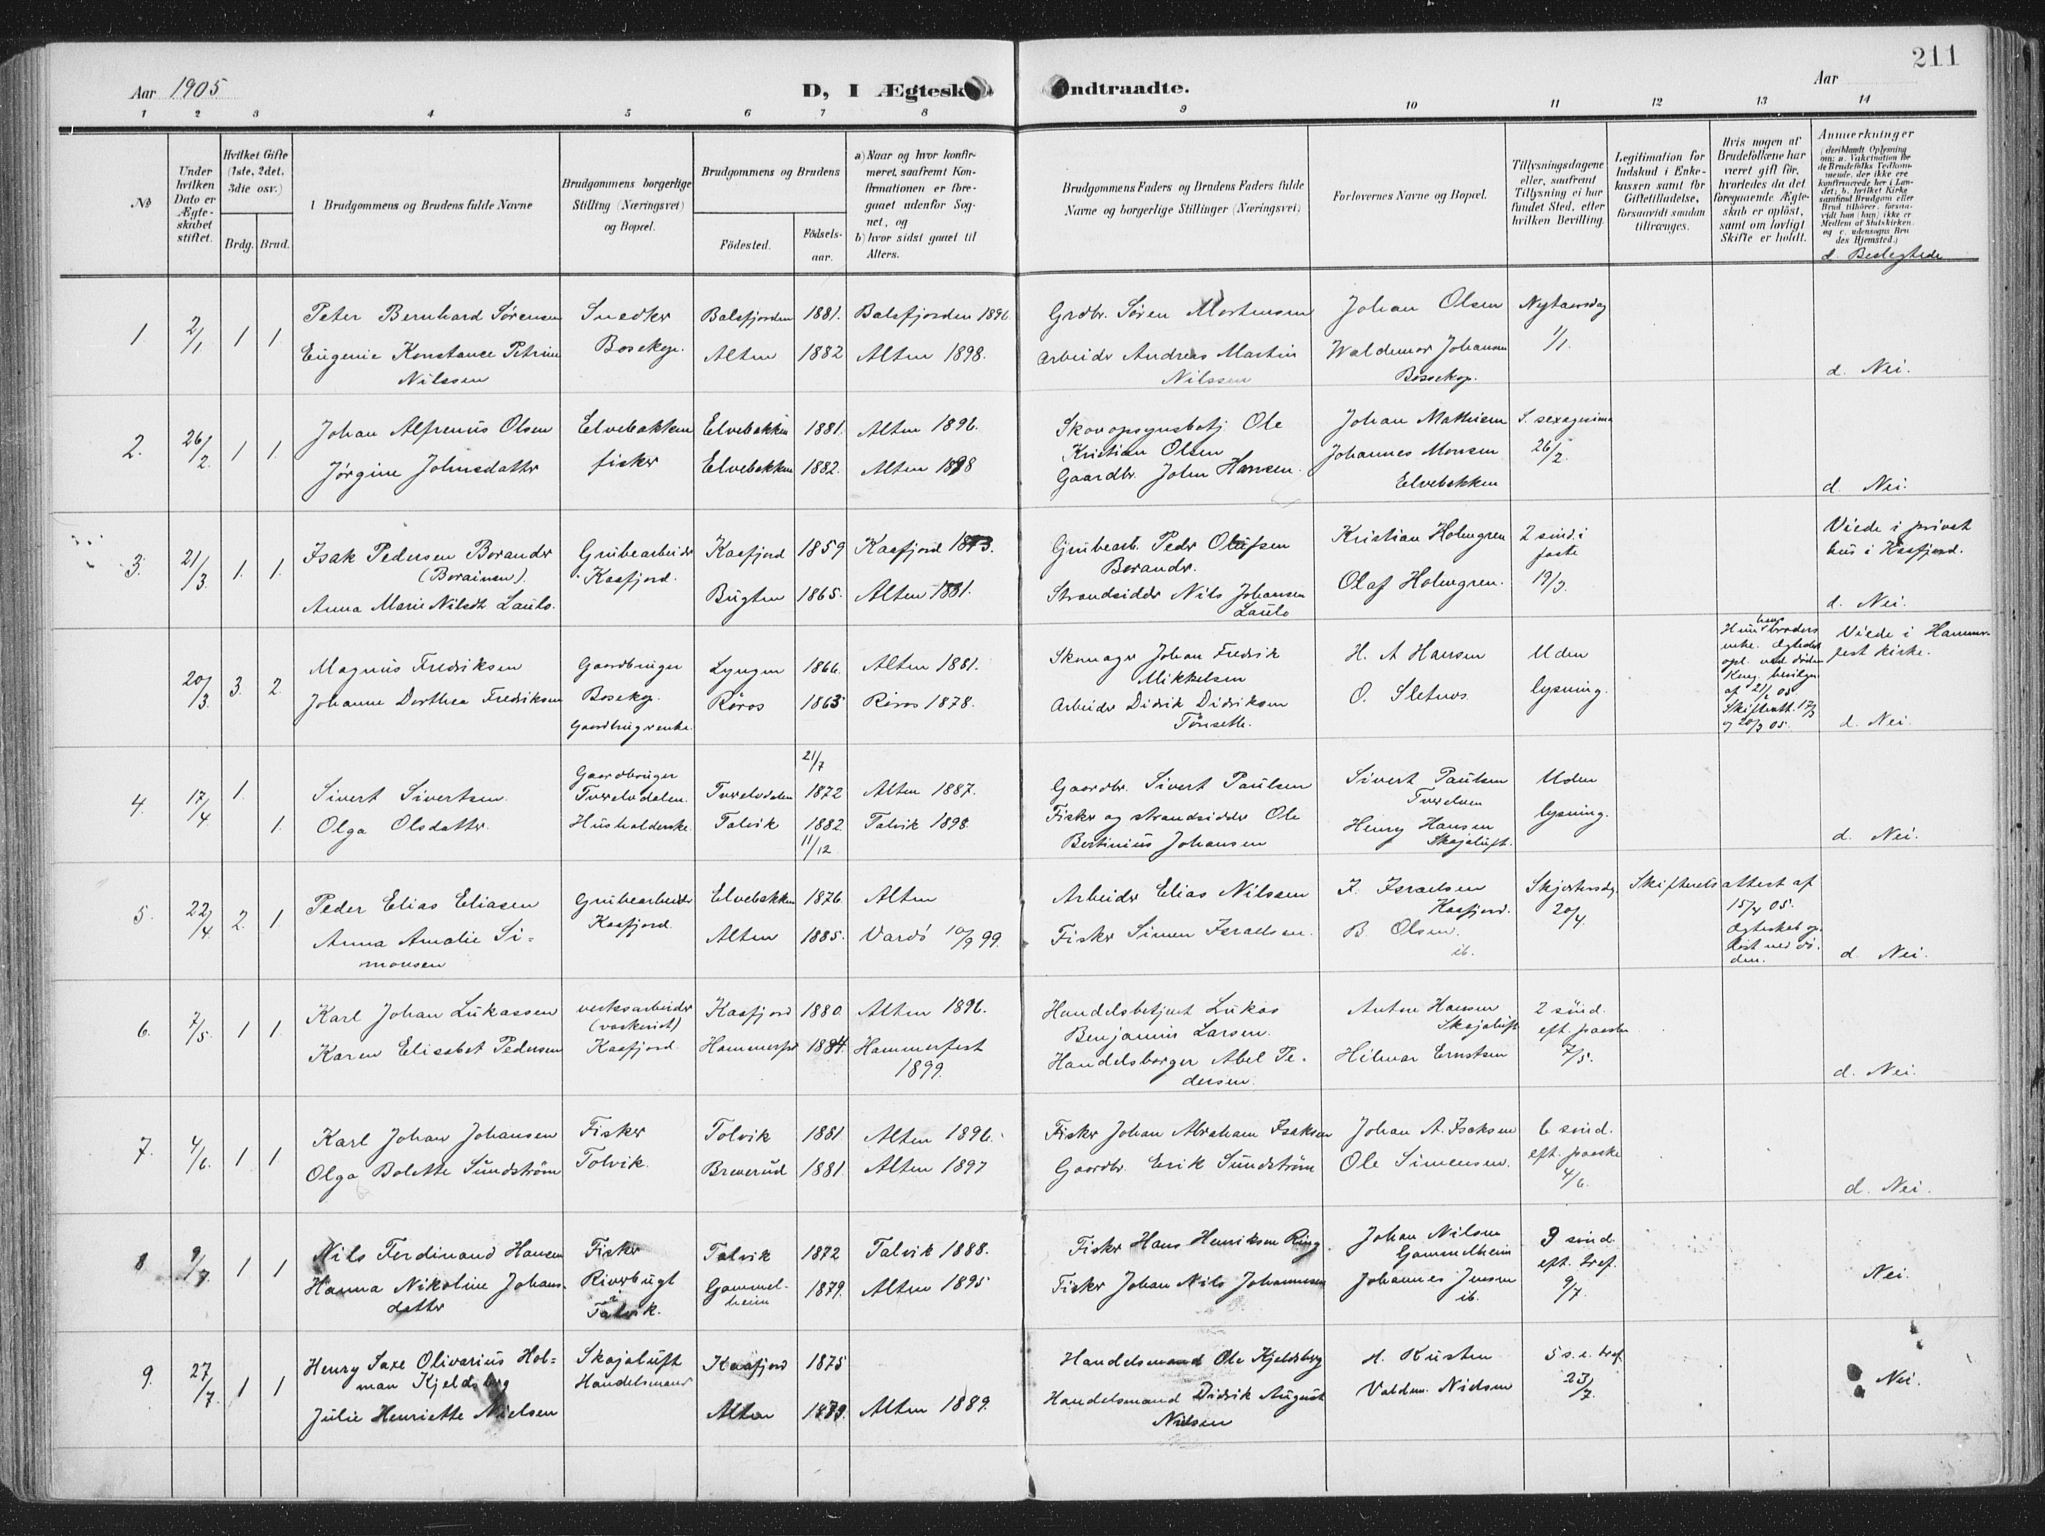 211
Aar 1905
D, I Ægtesk
ndtraadte.
Aar
1 2 3 4 5 6 7 8 9 10 11 12 13 14
No
Under hvilken Dato er Ægteskabet stiftet.
Hvilket Gifte (1ste, 2det, 3die osv.)
Brdg. Brud.
1 Brudgommens og Brudens fulde Navne
Brudgommens borgerlige Stilling (Næringsvei) og Bopæl.
Brudgommens og Brudens
Födested.
Födselsaar.
a) Naar og hvor konfirmeret, saafremt Konfirmationen er foregaaet udenfor Sognet, og
b) hvor sidst gaaet til Alters.
Brudgommens Faders og Brudens Faders fulde Navne og borgerlige Stillinger (Næringsvei)
Forlovernes Navne og Bopæl.
Tillysningsdagene eller, saafremt Tillysning ei har fundet Sted, efter hvilken Bevilling.
Legitimation for Indskud i Enkekassen samt før Giftetilladelse, forsaavidt saadan tiltrænges.
Hvis nogen af Brudefolkene har været gift før, hvorledes da det foregaaende Ægteskab er opløst, samt om lovligt Skifte er holdt.
Anmerkninger
(deriblandt Oplysning om: a. Vakcination for de Brudefolks Vedkommende, der ikke ere konfirmerede her i Landet; b. hvilket Kirkesamfund Brudgom eller Brud tilhører, forsaavidt han (hun) ikke er Medlem af Statskirken, og c. udensogns Brudes Hjemsted.)
d. Beslegtede
1 2/1 1 1
Peter Bernhard Sørensen
Eugenie Konstance Petrine
Nilssen
Snedker
Bosekop.
Balsfjorden 1881. Balsfjorden 1896
Alten 1882 Alten 1898.
Grdbr. Søren Mortensen
Arbeider Andreas Martin
Nilssen
Johan Olsen
Waldemar Johansen
Bossekop.
Nytaarsdag
1/1.
d. Nei.
2. 26/2. 1 1.
Johan Alfrenius Olsen
Jørgine Johnsdatter
Elvebakken
fisker
Elvebakken 1881. Alten 1896.
Elvebakken 1882. Alten 1898
Skovopsynsbetj. Ole
Kristian Olsen
Gaardbr. John Hansen.
Johan Mathisen
Johannes Monsen
Elvebakken
S. sexagesima
26/2.
d. Nei.
3. 21/3. 1. 1.
Isak Pedersen Borander
(Borainen).
Anna Marie Nilsdtr Laulo.
Grubearbeider
Kaafjord.
Kaafjord 1859 Kaafjord 1873.
Bugten 1865. Alten 1881.
Grubearb. Peder Olufsen
Borander.
Strandsidder Nils Johansen
Laulo
Kristian Holmgren
Olaf Holmgren.
2 sønd. i
faste
19/3
Viede i privat
hus i Kaafjord.
d. Nei.
20/3. 3. 2.
Magnus Fredriksen
Johanne Dorthea Fredriksen
Gaardbruger
Bosekop.
Gaardbrugerenke.
Lyngen 1866. Alten 1881.
Røros 1863 Røros 1878.
Skomager Johan Fredrik
Mikkelsen
Arbeider Didrik Didriksen
Tønsette.
H. A Hansen
O. Sletnes.
Uden
lysning.
Hun hans broders
enke. Ægteskab
opl. ved døden
Kong. bevilgn
af 2/2 05
Skifteatt. 17/3
og 20/3 05.
Viede i Hammerfest kirke.
d. Nei.
4. 17/4 1. 1.
Sivert Sivertsen.
Olga Olsdatter.
Gaardbruger
Tverelvdalen.
Husholderske.
21/7
Tverelvdalen 1872 Alten 1887.
Talvik 1882 Talvik 1898.
11/12.
Gaardbr. Sivert Paulsen
Fisker og strandsidder Ole
Bertinius Johansen
Sivert Paulsen
Tverelven
Henry Hansen
Skajaluft.
Uden
lysning.
d. Nei.
5. 22/4 2. 1.
Peder Elias Eliasen
Anna Amalie Si-
monsen
Grubearbeider
Kaafjord.
Elvebakken 1876. Alten
Alten 1885. Vardø 10/9 99.
Arbeider Elias Nilssen
Fisker Simen Israelsen.
I. Israelsen
Kaafjord.
B Olsen.
ib.
Skjærtorsdag
20/4.
Skifterets attest af
15/4 05.
Ægteskab op-
løst ved dø-
den.
d. Nei.
6. 7/5. 1 1.
Karl Johan Lukassen
Karen Elisabet Pedersen
verksarbeider
(vaskerist)
Kaafjord.
Kaafjord 1880 Alten 1896.
Hammerfest 1884. Hammerfest
1899.
Handelsbetjent Lukas
Benjamin Larsen.
Handelsborger Abel Pe-
dersen.
Anton Hansen
Skajaluft
Hilmar Ernstsen
2 sønd.
eft. paaske
7/5.
d. Nei.
7. 4/6. 1 1.
Karl Johan Johansen
Olga Bolette Sundstrøm
Fisker
Talvik.
Talvik 1881. Alten 1896.
Breverud 1881. Alten 1897
Fisker Johan Abraham Isaksen
Gaardbr. Erik Sundstrøm
Johan A. Isaksen
Ole Simensen.
6 sønd.
eft. paaske
4/6.
d. Nei.
8 9/7 1 1
Nils Ferdinand Hansen
Hanna Nikoline Johans-
datter
Fisker
Riverbugt
i
Talvik.
Talvik 1872 Talvik 1888.
Gammel-
heim 1879. Alten 1895
Fisker Hans Henriksen Ring
Fisker Johan Nils Johannesen
Johan Nilsen
Gammelheim
Johannes Jensen
ib.
3 sønd.
eft. tref.
9/7.
Nei.
9. 27/7. 1 1
Henry Saxe Olivarius Hol-
man Kjeldsberg
Julie Henriette Nielsen
Skajaluft
Handelsmand
Kaafjord 1875
Alten 1873. Alten 1889.
Handelsmand Ole Kjeldsberg
Handelsmand Didrik August
Nilsen
H. Kusten
Valdem. Nielsen
5 s. e. tref.
23/7.
Nei.